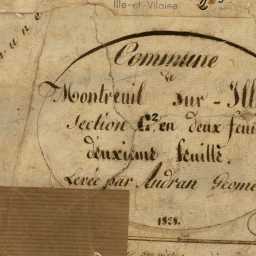 Ille-et-Vilaine
Commune
de
Montreuil sur - Ill
Section G2 en deux feui
deuxième feuille.
Levée par Audran Geome
1828.